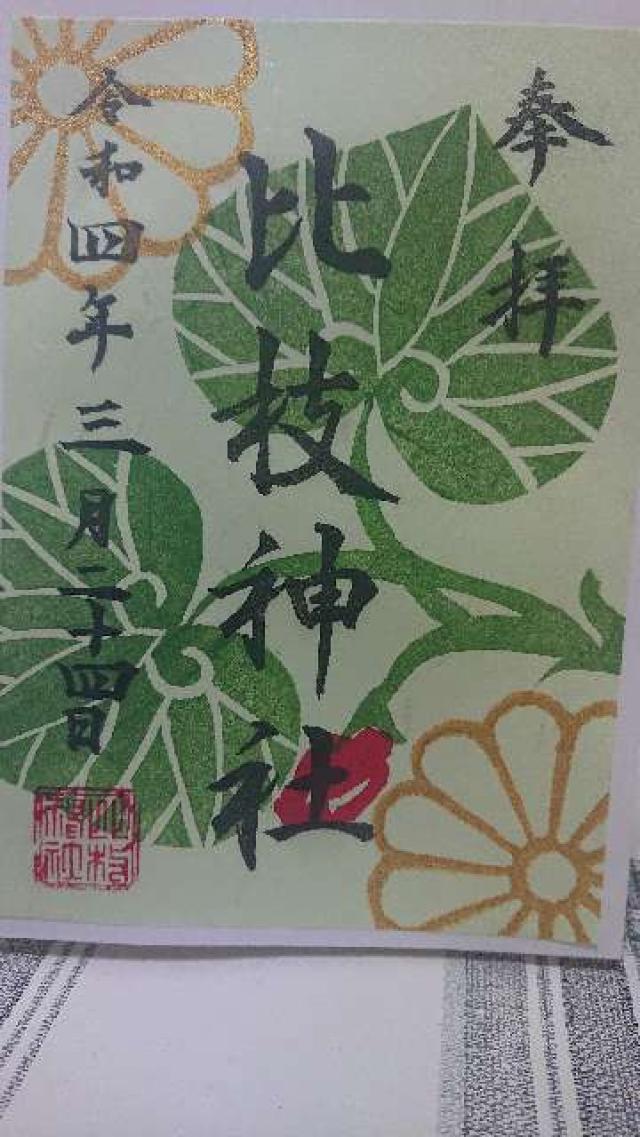 奉拝
比枝神社
令和四年三月二十四日